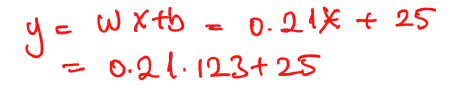 y = wx+b = 0.21x + 25
= 0.21.123+25